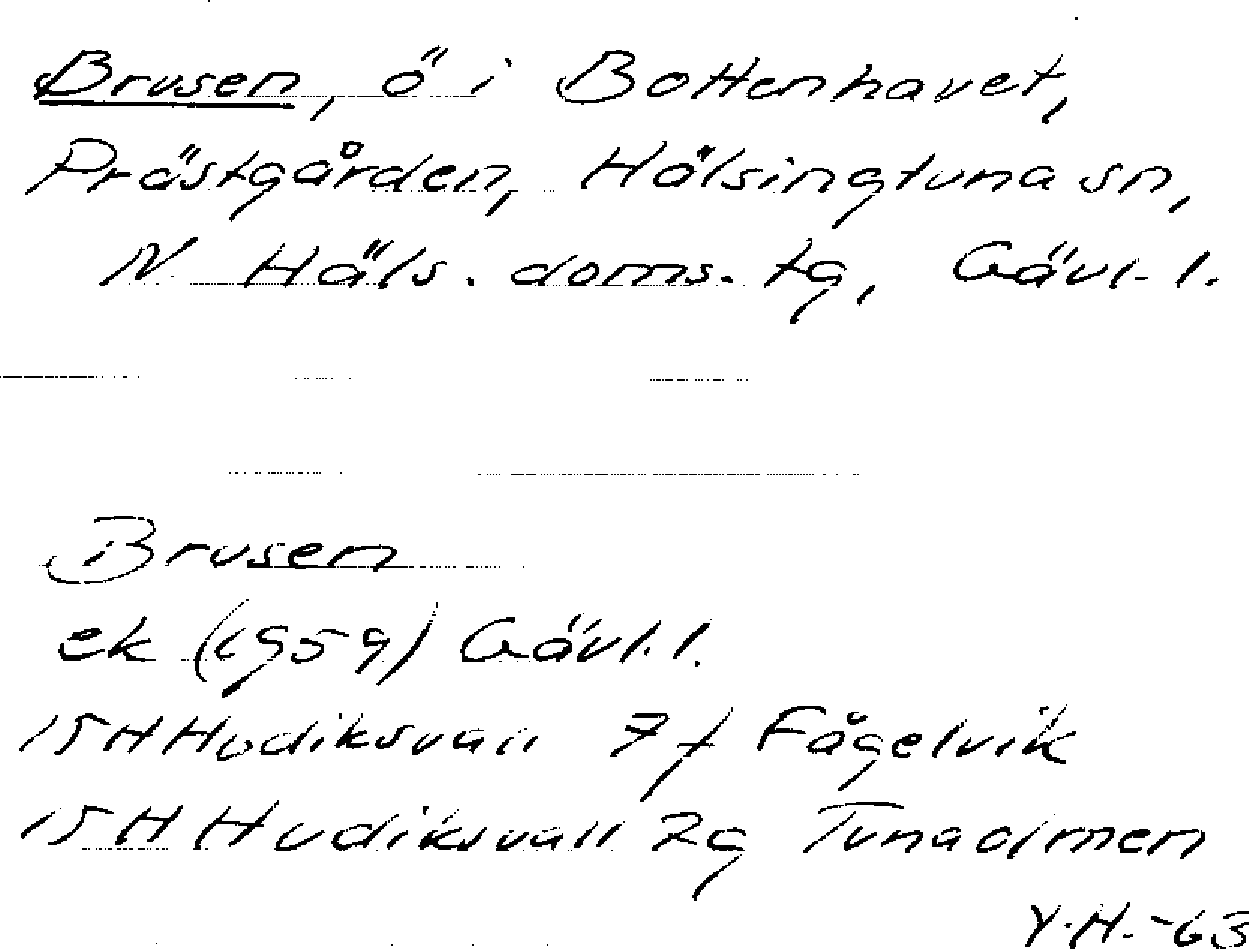 Brusen, ö i Bottenhavet,
Prästgården, Hälsingtuna sn,
N. Häls. doms. tg, Gävl. l.
Brusen
ek (1959) Gävl. l.
15H Hudiksvall 7f Fågelvik
15H Hudiksvall 7g Tunaolmen
Y.H. -63